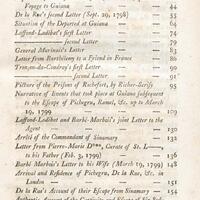 Voyage to Guiana — 44
De la Rue's second Letter (Sept. 29, 1798) — 55
Situation of the Deported at Guiana — 58
Laffond-Ladebat's first Letter — 73
second Letter — 79
General Marinais's Letter — 83
Letter from Barthélemy to a Friend in France — 86
Tronçon-du-Coudray's first Letter — 90
second Letter — 91
Picture of the Prison of Rochefort, by Richer-Serisy — 95
Narrative of Events that took place at Guiana subsequent
to the Escape of Pichegru, Ramel, &c. up to March
19, 1799 — 109
Laffond-Ladebat and Barbé-Marbois's joint Letter to the
Agent — 130
Arrêté of the Commandant of Sinamary — 132
Letter from Pierre-Marie D***, Curate of St. L——,
to his Father (Feb. 3, 1799) — 136
Barbé-Marbois's Letter to his Wife (March 19, 1799) — 148
Arrival and Residence of Pichegru, De la Rue, &c. in
London — 151
De la Rue's Account of their Escape from Sinamary — 154